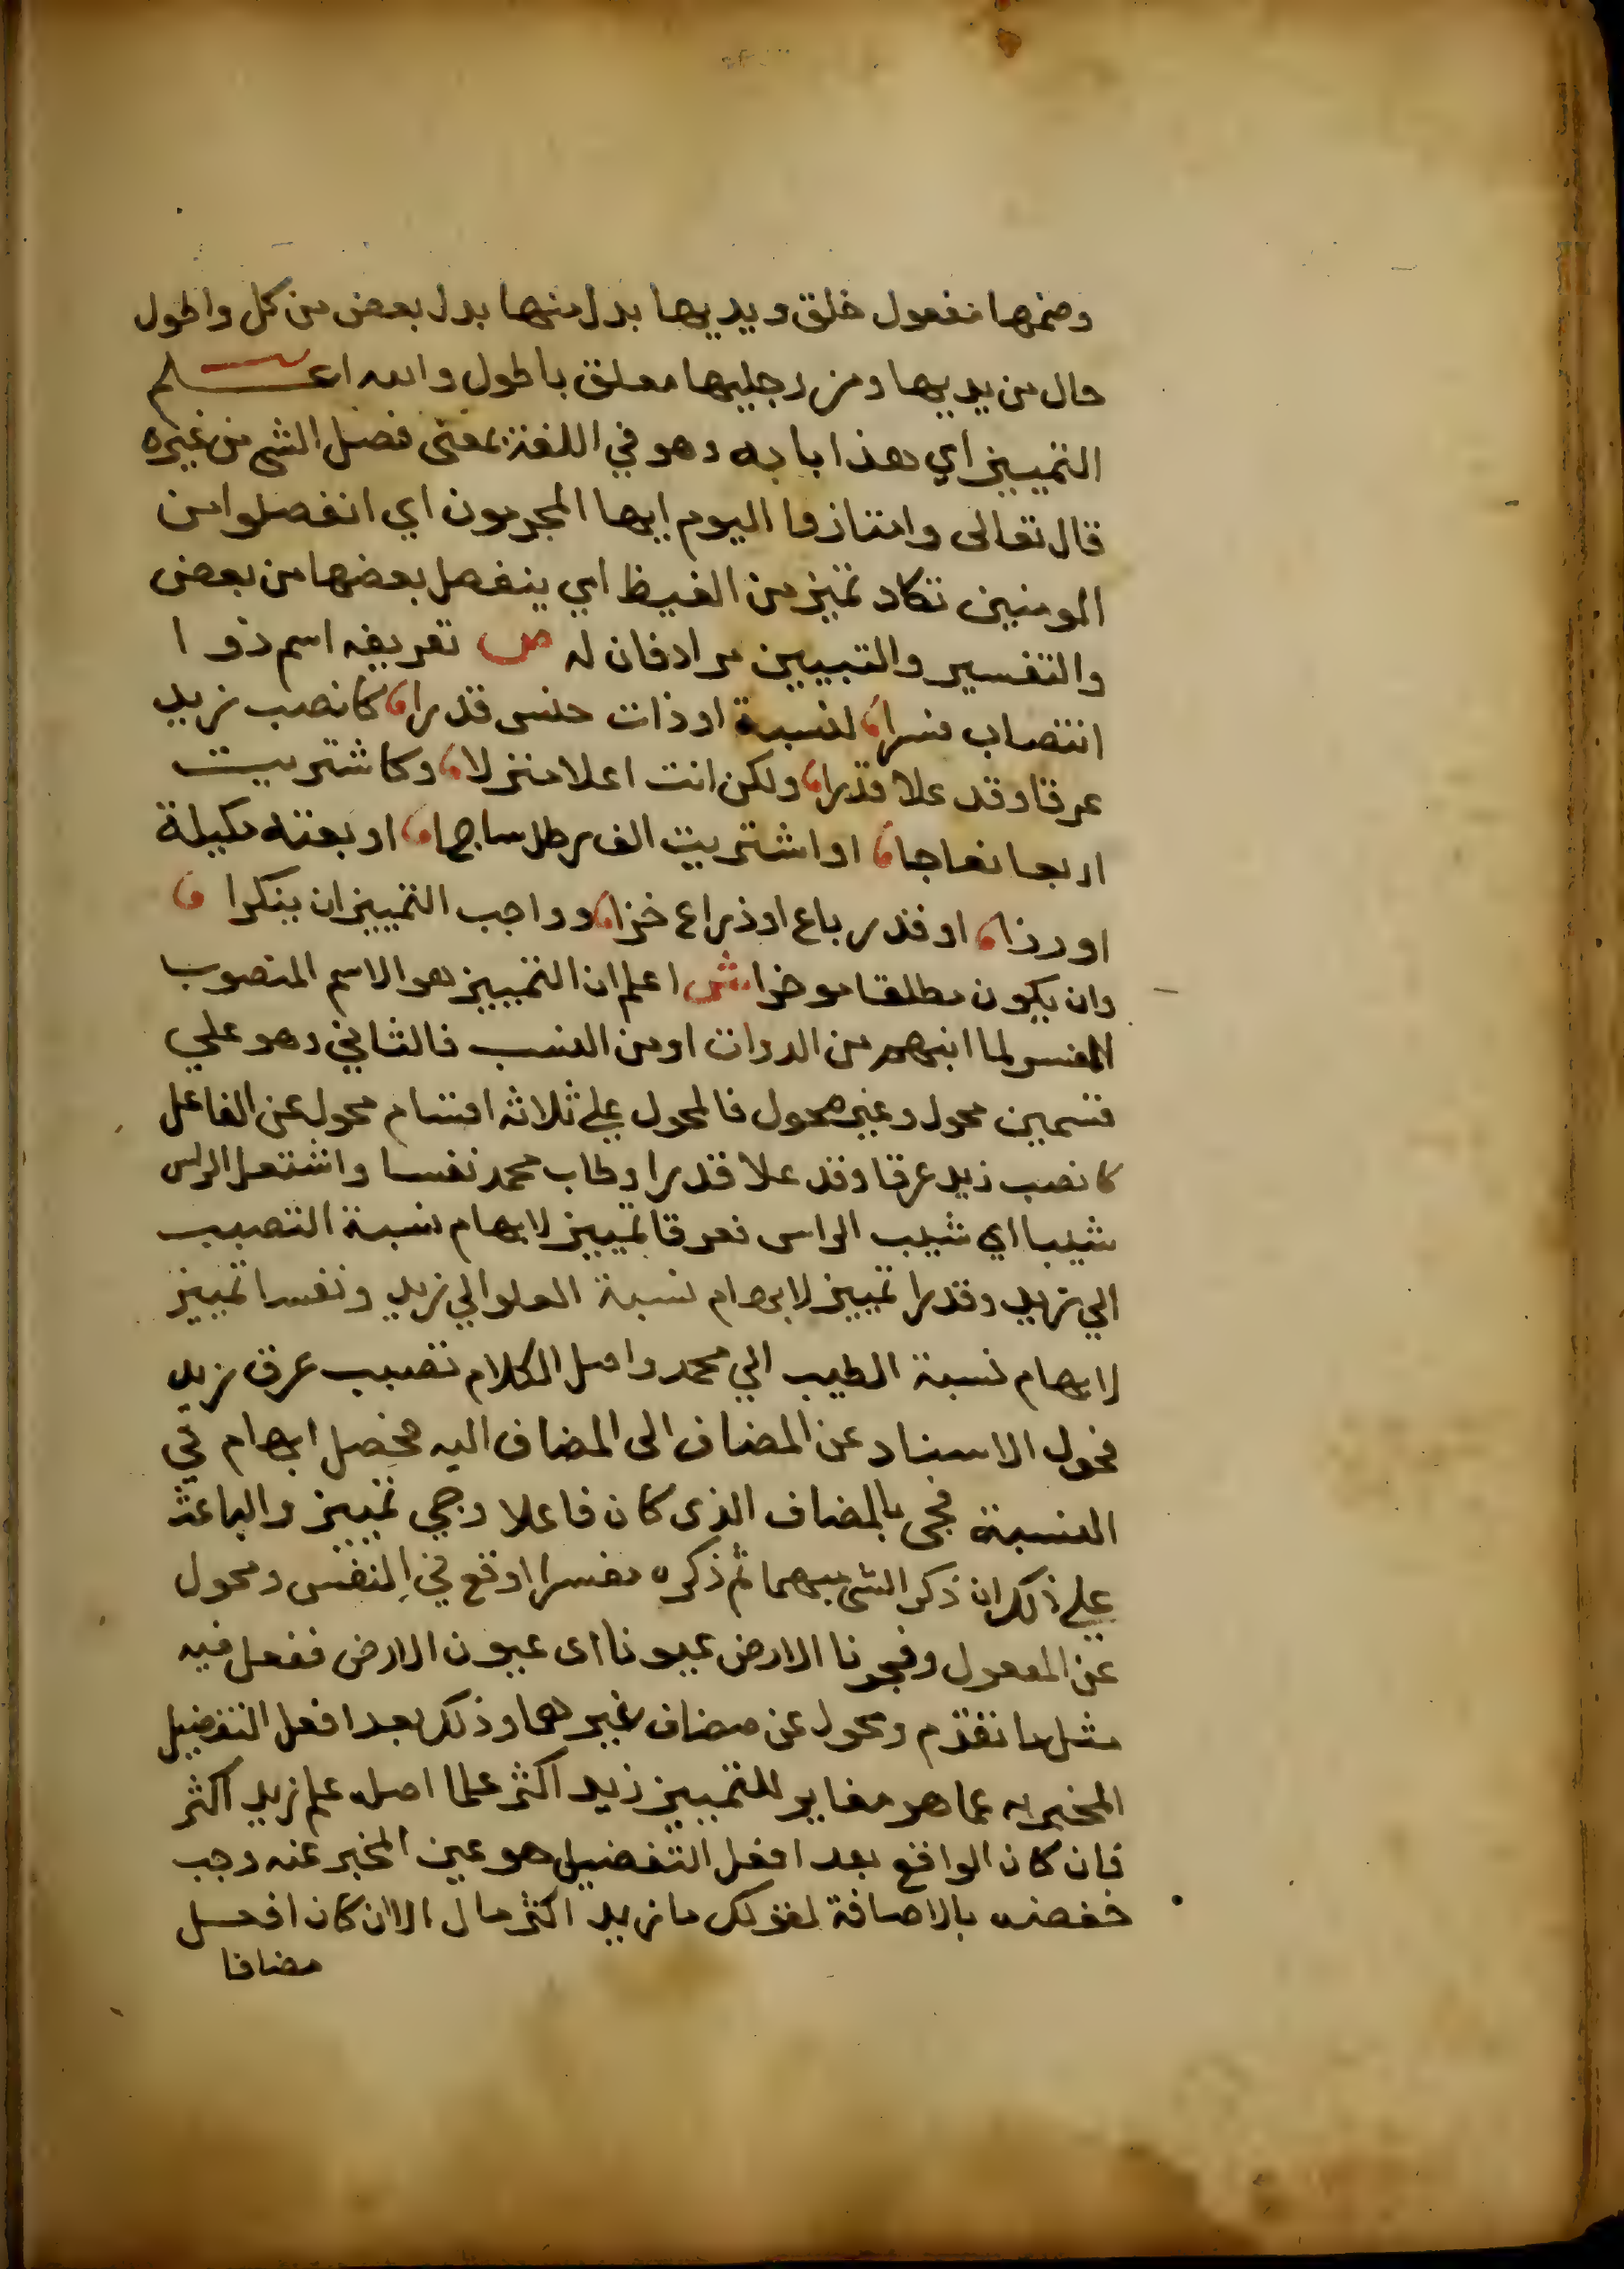 وضمها مفعول خلق ويديها بدل منها بدل بعض من كل واطول
حال من يديها ومن رجليها معلق باطول والله اعلم
التمييز اي هذا بابه وهو في اللغة بمعنى فصل الشي من غيره
قال تعالى وامتازوا اليوم ايها المجرمون اي انفصلوا من
المومنين تكاد تميز من الغيظ اي ينفصل بعضها من بعض
والتفسير والتبيين مرادفان له ص تعريفه اسم ذو ا
انتصاب فسرا لنسبة او ذات جنس قدرا كانصب زيد
عرقا وقد علا قدرا ولكن انت اعلا منزلا وكاشتريت
اربعا نعاجا او اشتريت الف رطل ساجا او بعته مكيلة
او رزا او قدر باع او ذراع خزا وواجب التمييز ان ينكرا
وان يكون مطلقا موخرا ش اعلم ان التمييز هو الاسم المنصوب
المفسر لما انبهم من الدوات او من النسب فالثاني وهو علي
قسمين محول وغير محول فالمحول علي ثلاثة اقسام محول عن الفاعل
كانصب زيد عرقا وقد علا قدرا وطاب محمد نفسا واشتعل الراس
شيبا اي شيب الراس فعرقا تمييز لابهام نسبة التصبب
الي زيد وقدرا تمييز لابهام نسبة العلو الي زيد ونفسا تمييز
لابهام نسبة الطيب الي محمد واصل الكلام تصبب عرق زيد
فحول الاسناد عن المضاف الى المضاف اليه فحصل ابهام في
النسبة فجي بالمضاف الذي كان فاعلا وجي تمييز والباعث
علي ذلك ان ذكر الشي مبهما ثم ذكره مفسرا اوقع في النفس ومحول
عن المفعول وفجرنا الارض عيونا اى عيون الارض ففعل فيه
مثل ما تقدم ومحول عن مضاف غيرهما وذلك بعد افعل التفضيل
المخبر به عما هو مغاير للتمييز زيد اكثر علما اصله علم زيد اكثر
فان كان الواقع بعد افعل التفضيل هو عين المخبر عنه وجب
خفضه بالاضافة لقولك ما زيد اكثر مال الا ان كان افعل
مضافا